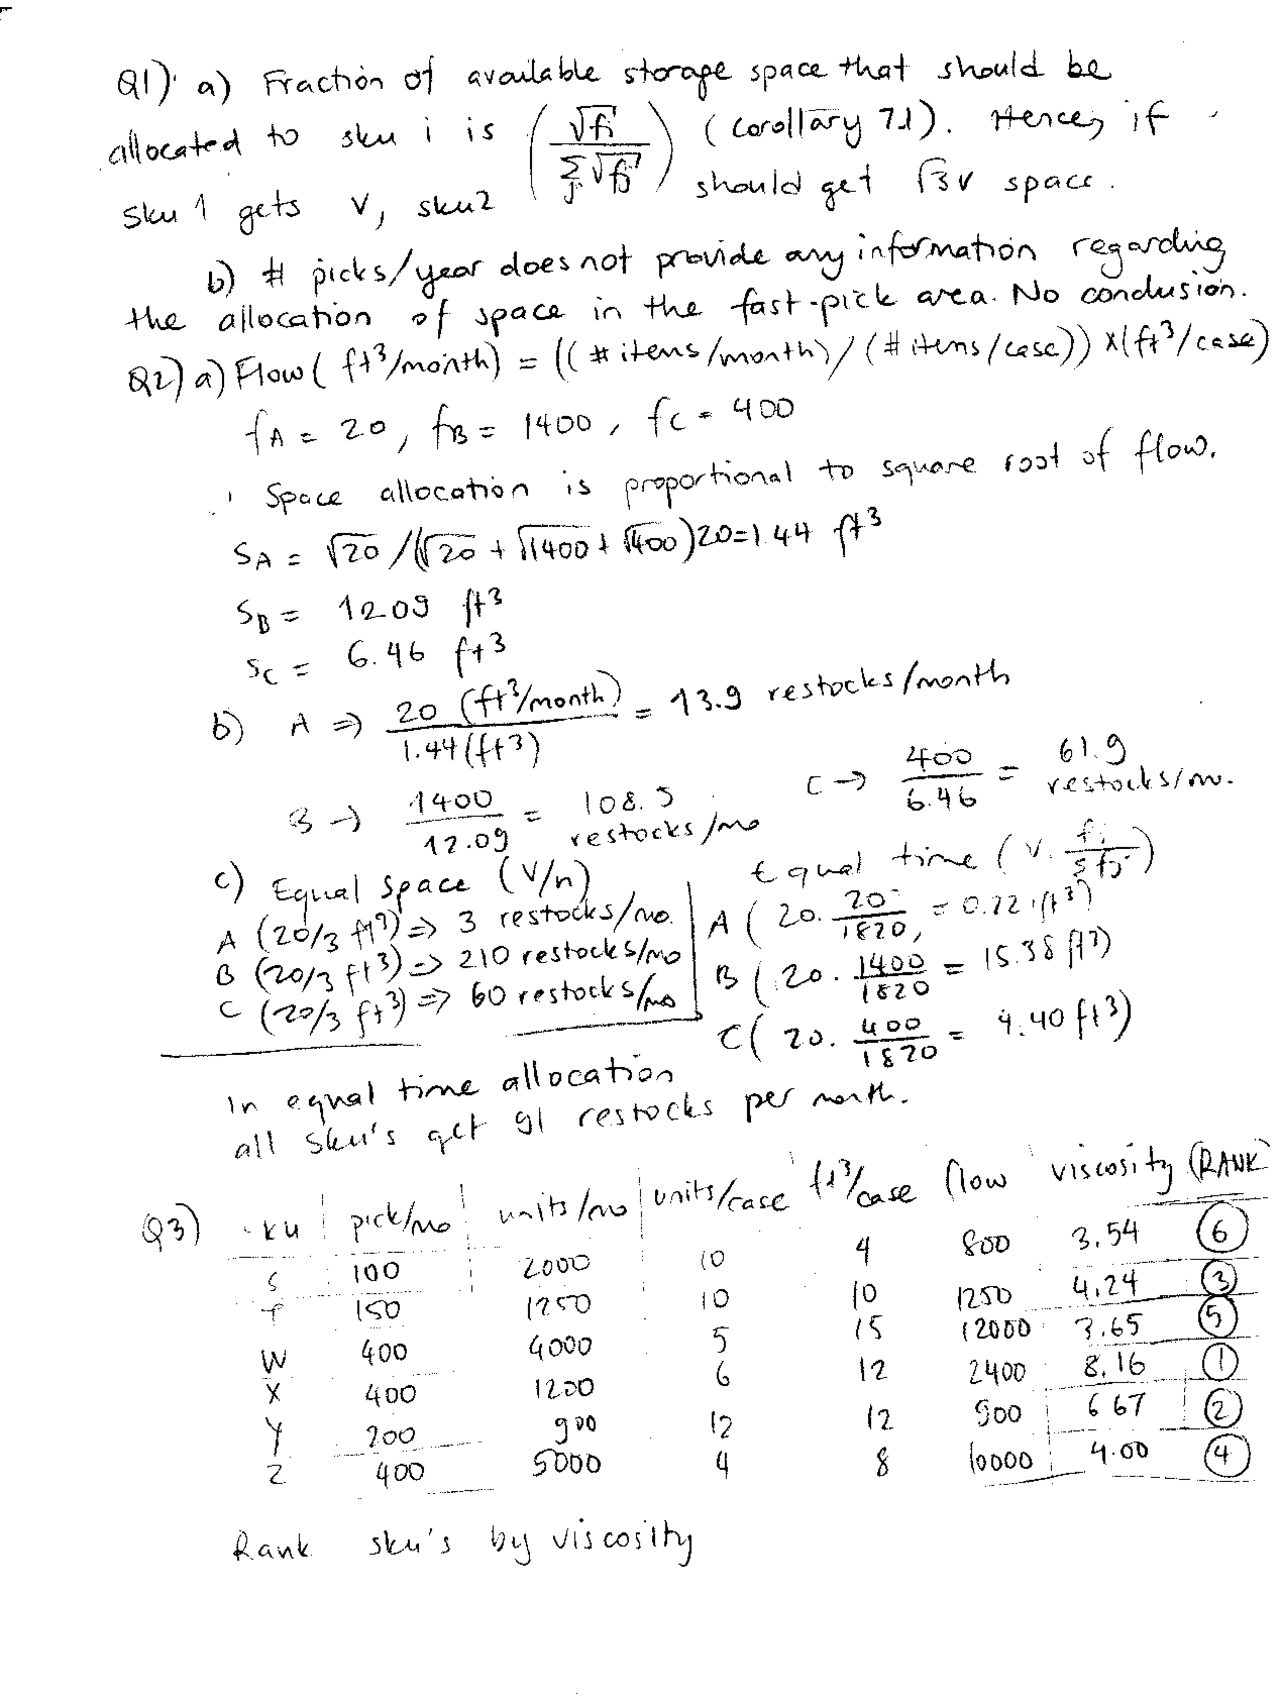 Q1) a) Fraction of available storage space that should be
allocated to sku i is (√fi / Σj √fj) (corollary 7.1). Hence, if
sku 1 gets v, sku2 should get √3v space.
b) # picks/year does not provide any information regarding
the allocation of space in the fast-pick area. No conclusion.
Q2) a) Flow (ft³/month) = ((# items/month)/(# items/case)) x (ft³/case)
fA = 20, fB = 1400, fC = 400
Space allocation is proportional to square root of flow.
SA = √20 /(√20 + √1400 + √400)20=1.44 ft³
SB = 12.09 ft³
SC = 6.46 ft³
b) A ⇒ 20 (ft³/month) / 1.44 (ft³) = 13.9 restocks/month
B → 1400 / 12.09 = 108.5 restocks/mo
C → 400 / 6.46 = 61.9 restocks/mo.
c) Equal space (V/n)
A (20/3 ft³) ⇒ 3 restocks/mo.
B (20/3 ft³) ⇒ 210 restocks/mo
C (20/3 ft³) ⇒ 60 restocks/mo
Equal time (V. fi / Σfj)
A ( 20. 20 / 1820, = 0.22 ft³)
B ( 20. 1400 / 1820 = 15.38 ft³)
C ( 20. 400 / 1820 = 4.40 ft³)
In equal time allocation
all sku's get 91 restocks per month.
Q3) sku pick/mo units/mo units/case ft³/case flow viscosity (RANK)
S 100 2000 10 4 800 3.54 6
T 150 1250 10 10 1250 4.24 3
W 400 4000 5 15 12000 3.65 5
X 400 1200 6 12 2400 8.16 1
Y 200 900 12 12 900 6 67 2
Z 400 5000 4 8 10000 4.00 4
Rank sku's by viscosity